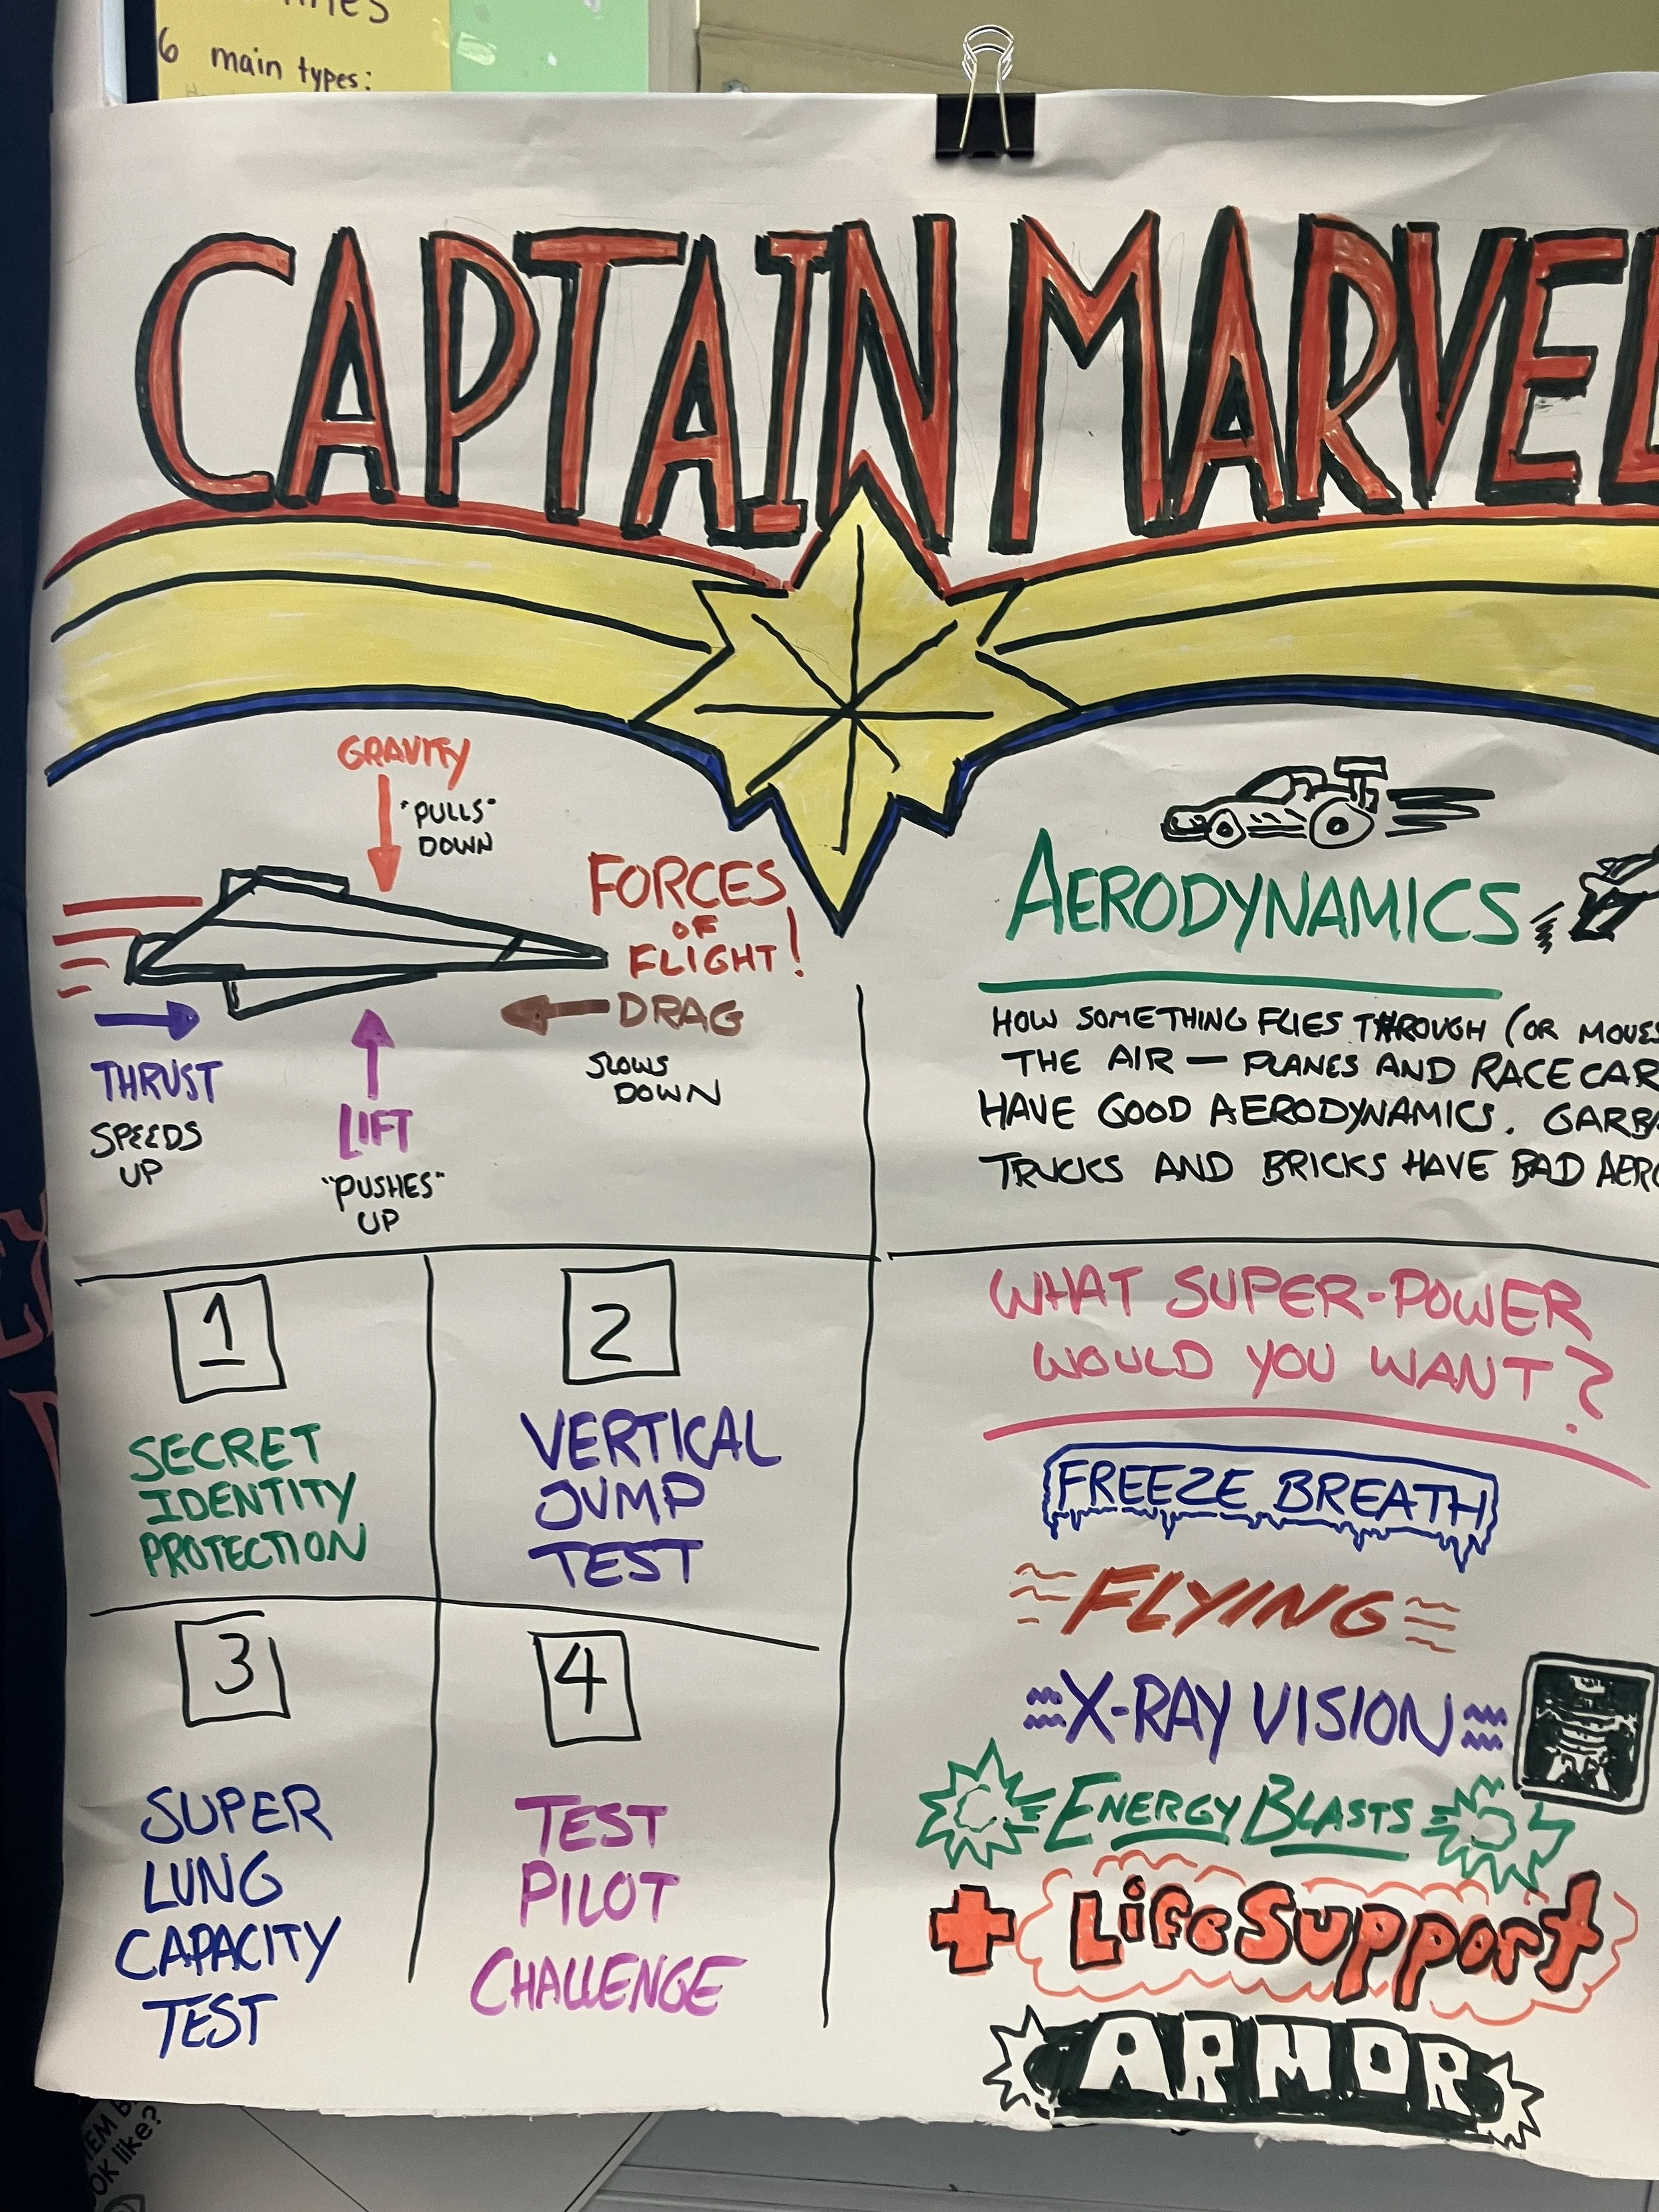 6 main types:
CAPTAIN MARVEL
GRAVITY
"PULLS"
DOWN
FORCES
OF
FLIGHT!
DRAG
SLOWS
DOWN
THRUST
SPEEDS
UP
LIFT
"PUSHES"
UP
AERODYNAMICS
HOW SOMETHING FLIES THROUGH (OR MOVES
THE AIR — PLANES AND RACECAR
HAVE GOOD AERODYNAMICS. GARBA
TRUCKS AND BRICKS HAVE BAD AERO
1
SECRET
IDENTITY
PROTECTION
2
VERTICAL
JUMP
TEST
3
SUPER
LUNG
CAPACITY
TEST
4
TEST
PILOT
CHALLENGE
WHAT SUPER-POWER
WOULD YOU WANT?
FREEZE BREATH
FLYING
X-RAY VISION
ENERGY BLASTS
+ Life Support
ARMOR
like?